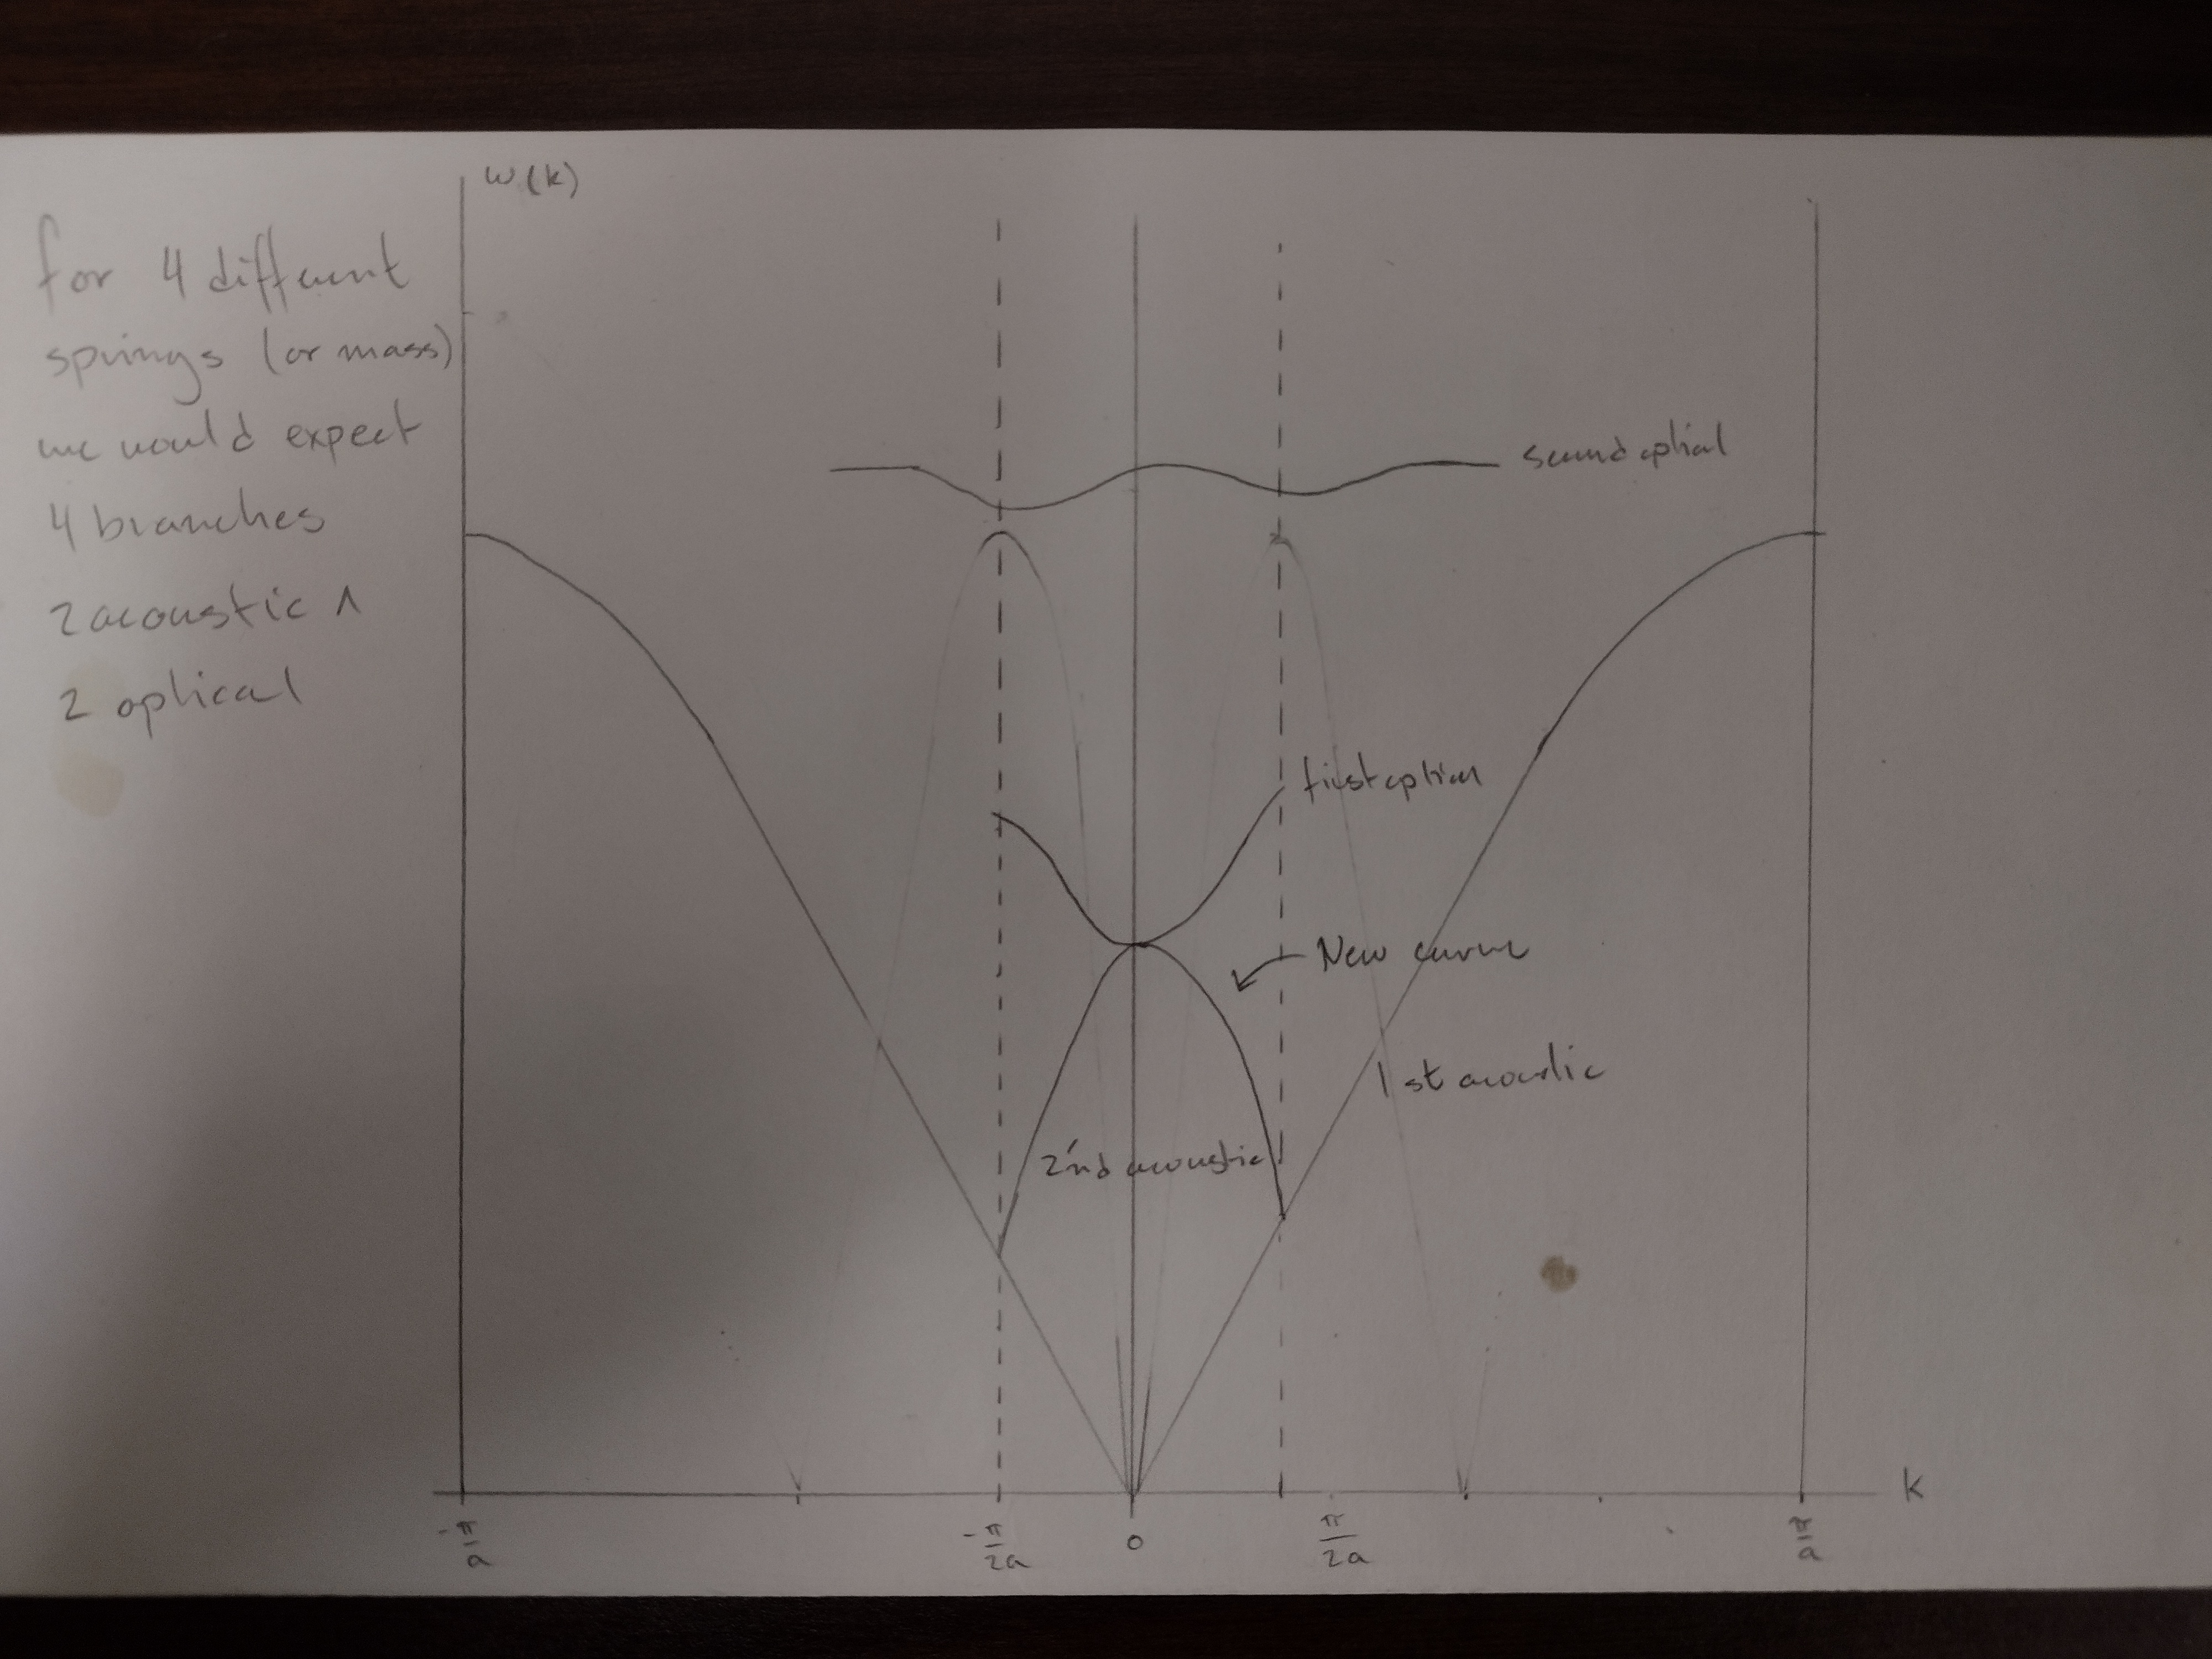 ω(k)
for 4 different
springs (or mass)
we would expect
4 branches
2 acoustic ∧
2 optical
second optical
first optical
New curve
1st acoustic
2nd acoustic
k
-π/a
-π/2a
0
π/2a
π/a